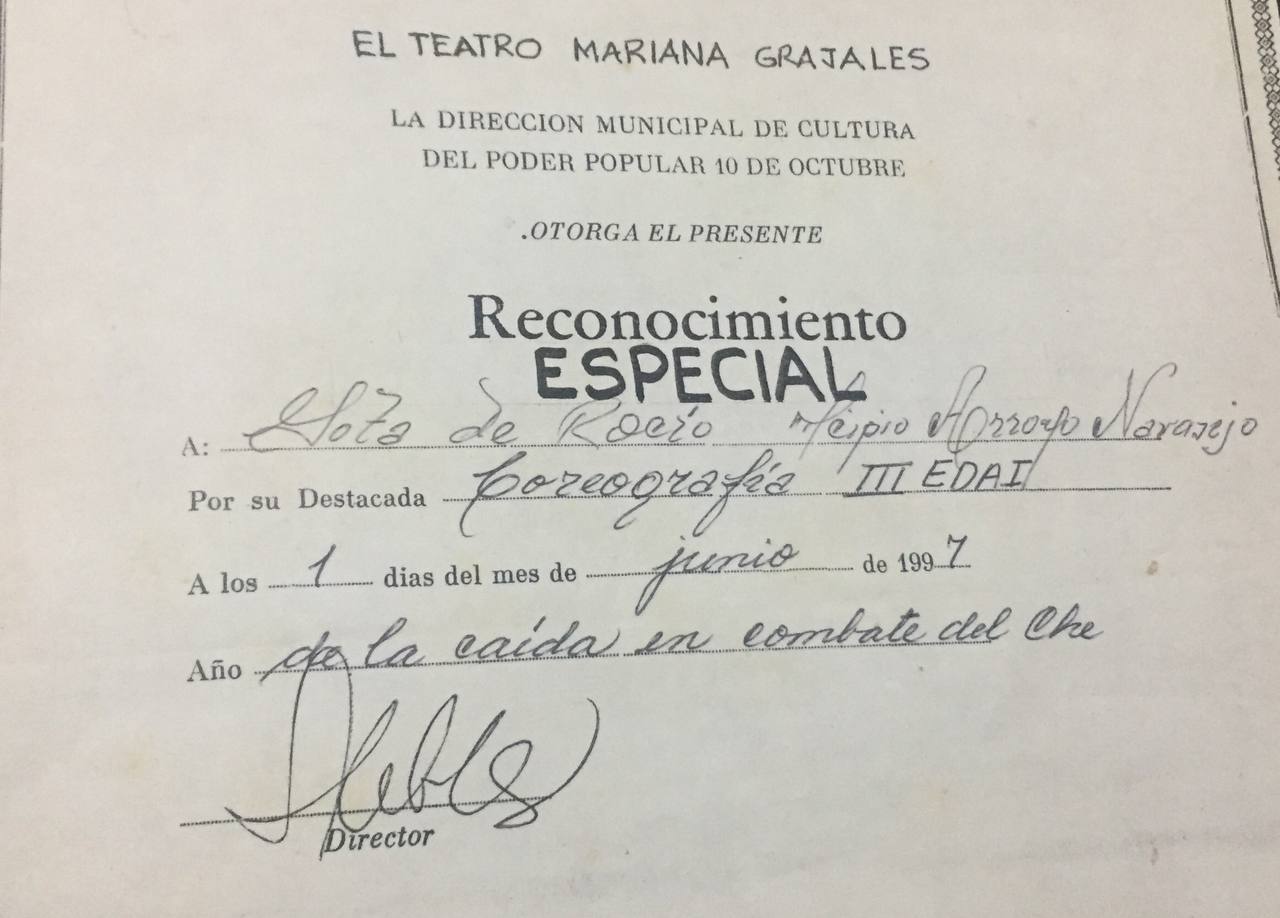 EL TEATRO MARIANA GRAJALES
LA DIRECCION MUNICIPAL DE CULTURA
DEL PODER POPULAR 10 DE OCTUBRE
.OTORGA EL PRESENTE
Reconocimiento
ESPECIAL
A: Gota de Rocío Mcipio Arroyo Naranjo
Por su Destacada Coreografía III EDAI
A los 1 dias del mes de junio de 1997
Año de la caída en combate del Che
Director